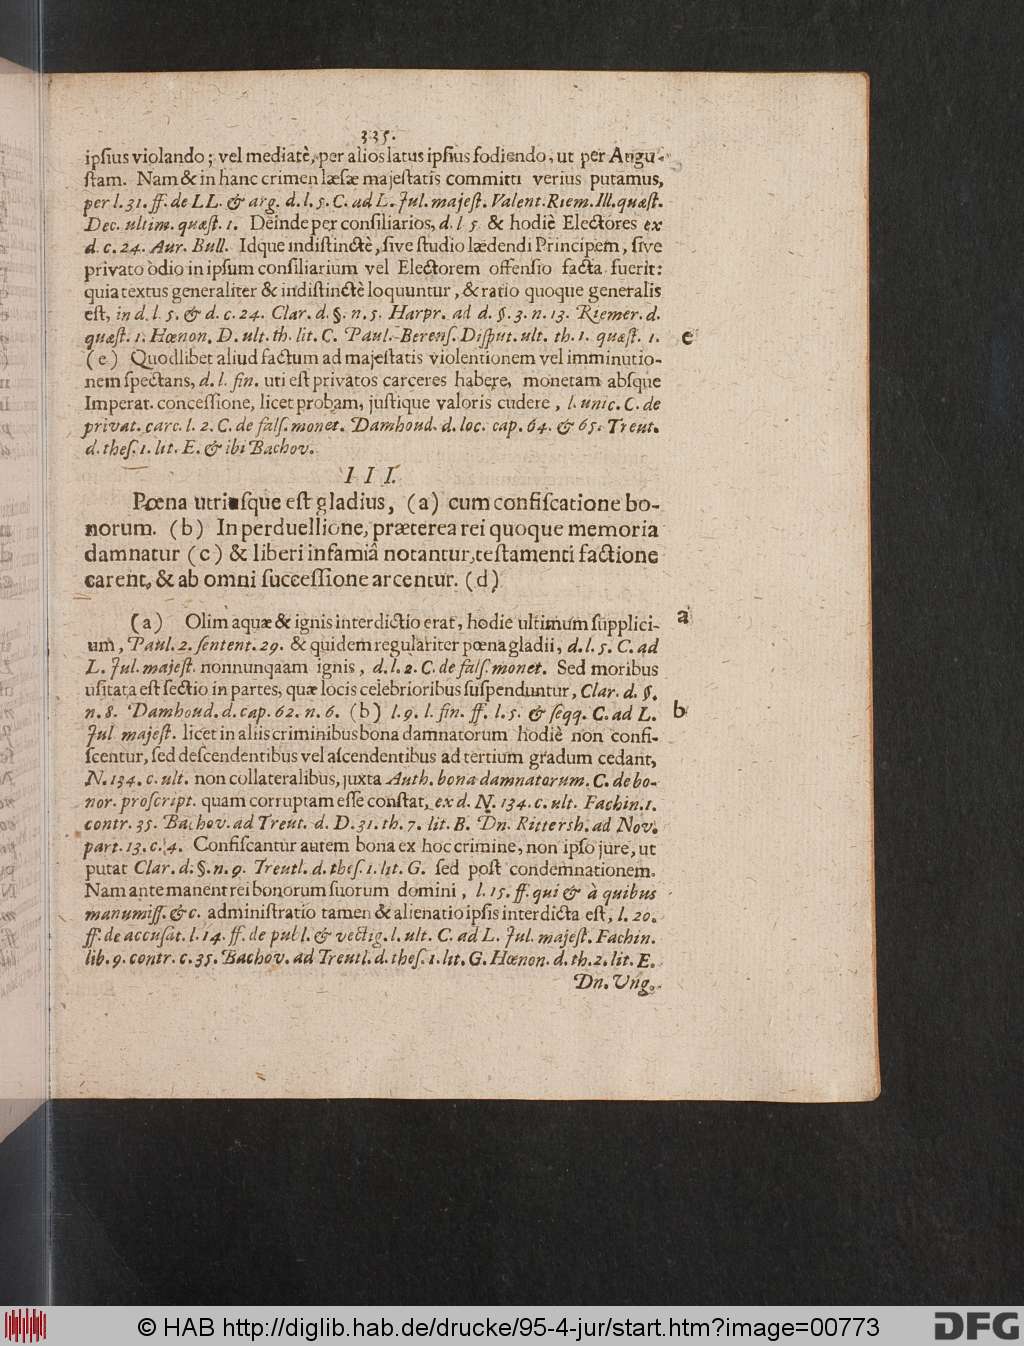 335.
ipſius violando; vel mediatè, per alios latus ipſius fodiendo, ut per Augu-
ſtam. Nam & in hanc crimen læſæ majeſtatis committi verius putamus,
per l. 31. ff. de LL. & arg. d. l. 5. C. ad L. Jul. majeſt. Valent. Riem. Ill. quæſt.
Dec. ultim. quæſt. 1. Deinde per conſiliarios, d. l 5 & hodiè Electores ex
d. c. 24. Aur. Bull. Idque indiſtinctè, ſive ſtudio lædendi Principem, ſive
privato odio in ipſum conſiliarium vel Electorem offenſio facta fuerit:
quia textus generaliter & indiſtinctè loquuntur, & ratio quoque generalis
eſt, in d. l. 5. & d. c. 24. Clar. d. §. n. 5. Harpr. ad d. §. 3. n. 13. Riemer. d.
quæſt. 1. Hœnon. D. ult. th. lit. C. Paul. Berenſ. Diſput. ult. th. 1. quæſt. 1.
e
(e) Quodlibet aliud factum ad majeſtatis violentionem vel imminutio-
nem ſpectans, d. l. fin. uti eſt privatos carceres habere, monetam abſque
Imperat. conceſſione, licet probam, juſtique valoris cudere, l. unic. C. de
privat. carc. l. 2. C. de falſ. monet. Damhoud. d. loc. cap. 64. & 65. Treut.
d. theſ. 1. lit. E. & ibi Bachov.
III.
Pœna utriusque eſt gladius, (a) cum confiſcatione bo-
norum. (b) In perduellione, præterea rei quoque memoria
damnatur (c) & liberi infamiâ notantur, teſtamenti factione
carent, & ab omni ſucceſſione arcentur. (d)
(a) Olim aquæ & ignis interdictio erat, hodie ultimum ſupplici-
a
um, Paul. 2. ſentent. 29. & quidem regulariter pœna gladii, d. l. 5. C. ad
L. Jul. majeſt. nonnunqaam ignis, d. l. 2. C. de falſ. monet. Sed moribus
uſitata eſt ſectio in partes, quæ locis celebrioribus ſuſpenduntur, Clar. d. §.
n. 8. Damhoud. d. cap. 62. n. 6. (b) l. 9. l. fin. ff. l. 5. & ſeqq. C. ad L.
b
Jul majeſt. licet in aliis criminibus bona damnatorum hodiè non confi-
ſcentur, ſed deſcendentibus vel aſcendentibus ad tertium gradum cedant,
N. 134. c. ult. non collateralibus, juxta Auth. bona damnatorum. C. de bo-
nor. proſcript. quam corruptam eſſe conſtat, ex d. N. 134. c. ult. Fachin. 1.
contr. 35. Bachov. ad Treut. d. D. 31. th. 7. lit. B. Dn. Rittersh. ad Nov.
part. 13. c. 4. Confiſcantur autem bona ex hoc crimine, non ipſo jure, ut
putat Clar. d. §. n. 9. Treutl. d. theſ. 1. lit. G. ſed poſt condemnationem.
Nam ante manent rei bonorum ſuorum domini, l. 15. ff. qui & à quibus
manumiſſ. &c. adminiſtratio tamen & alienatio ipſis interdicta eſt, l. 20.
ff. de accuſat. l. 14. ff. de publ. & vectig. l. ult. C. ad L. Jul. majeſt. Fachin.
lib. 9. contr. c. 35. Bachov. ad Treutl. d. theſ. 1. lit. G. Hœnon. d. th. 2. lit. E.
Dn. Ung.
© HAB http://diglib.hab.de/drucke/95-4-jur/start.htm?image=00773
DFG